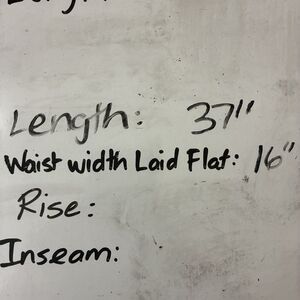 Length: 37"
Waist width Laid Flat: 16"
Rise:
Inseam: